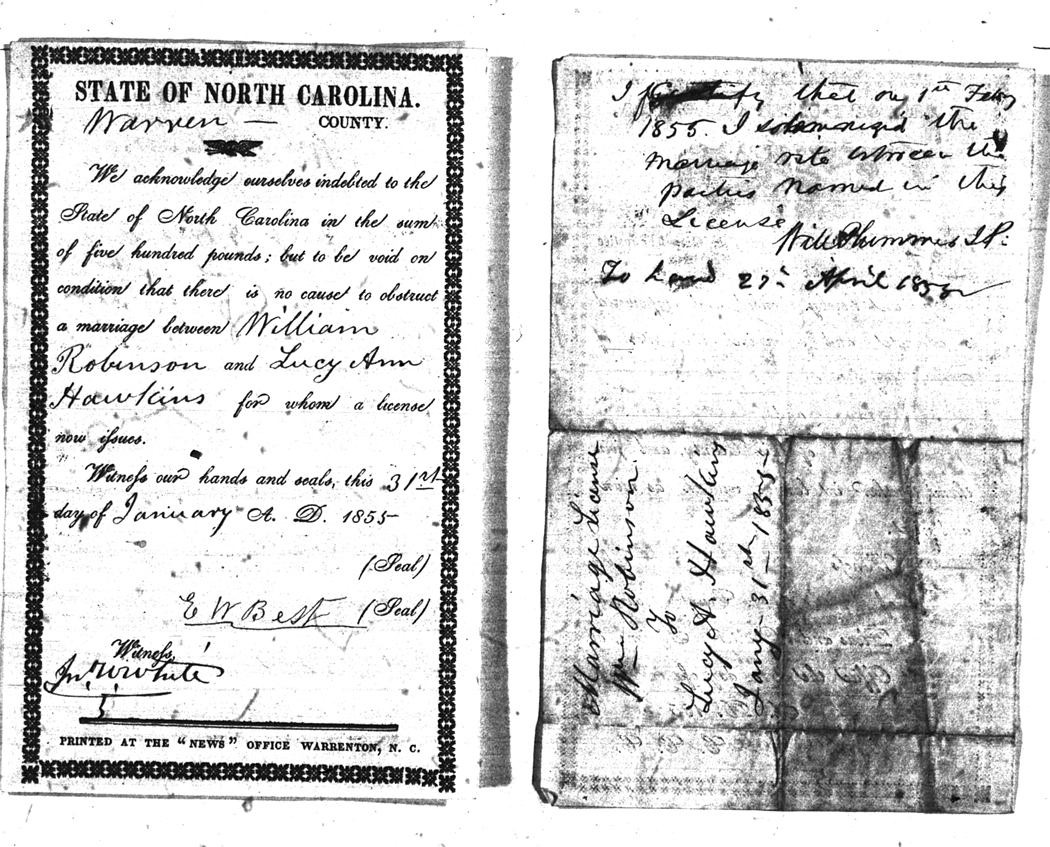 STATE OF NORTH CAROLINA.
Warren — COUNTY.
We acknowledge ourselves indebted to the
State of North Carolina in the sum
of five hundred pounds; but to be void on
condition that there is no cause to obstruct
a marriage between William
Robinson and Lucy Ann
Hawkins for whom a license
now issues.
Witness our hands and seals, this 31st
day of January A. D. 1855
(Seal)
E W Best (Seal)
Witness,
Jno. W White
PRINTED AT THE "NEWS" OFFICE WARRENTON, N. C.
I that on 1st Feby
1855. I solemnized the
marriage rite between the
parties named in this
License
Will Plummer J P.
To 27th April 1855
Marriage License
Wm Robinson
To
Lucy A. Hawkins
Jany 31st 1855